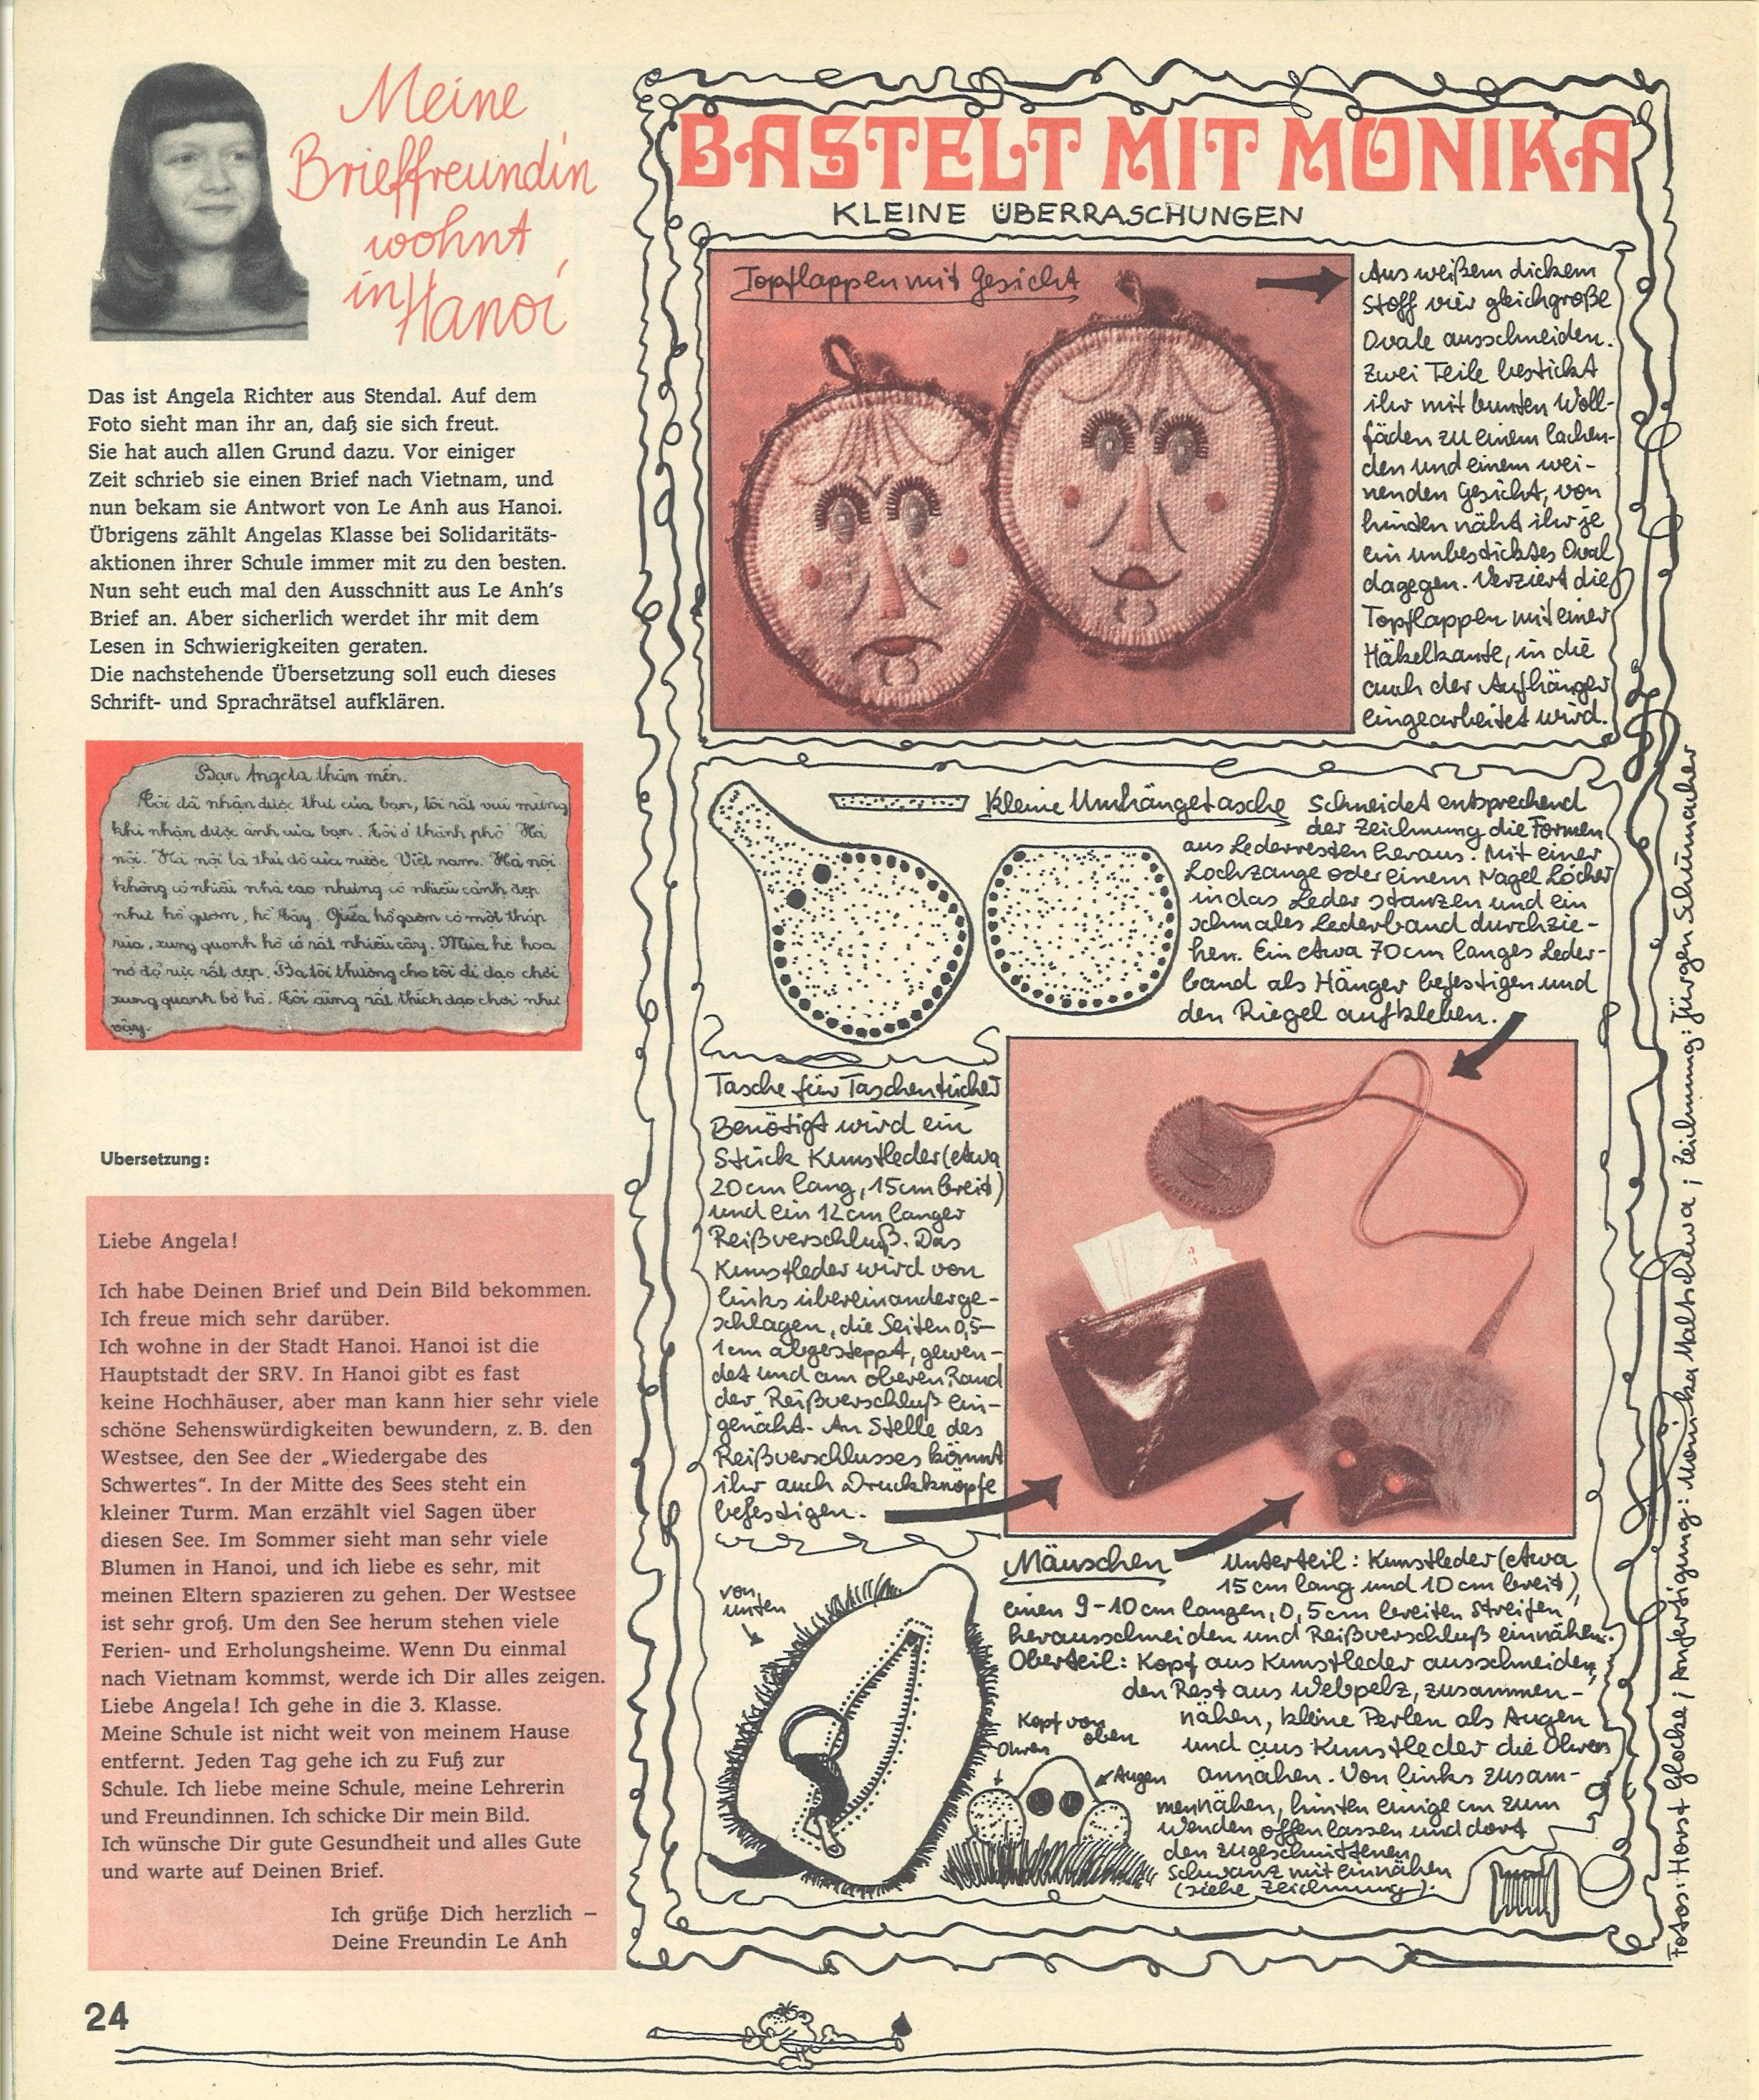 Meine
Brieffreundin
wohnt
in Hanoi
Das ist Angela Richter aus Stendal. Auf dem
Foto sieht man ihr an, daß sie sich freut.
Sie hat auch allen Grund dazu. Vor einiger
Zeit schrieb sie einen Brief nach Vietnam, und
nun bekam sie Antwort von Le Anh aus Hanoi.
Übrigens zählt Angelas Klasse bei Solidaritäts-
aktionen ihrer Schule immer mit zu den besten.
Nun seht euch mal den Ausschnitt aus Le Anh's
Brief an. Aber sicherlich werdet ihr mit dem
Lesen in Schwierigkeiten geraten.
Die nachstehende Übersetzung soll euch dieses
Schrift- und Sprachrätsel aufklären.
Bạn Angela thân mến.
Tôi đã nhận được thư của bạn, tôi rất vui mừng
khi nhận được ảnh của bạn. Tôi ở thành phố Hà
nội. Hà nội là thủ đô của nước Việt nam. Hà nội
không có nhiều nhà cao nhưng có nhiều cảnh đẹp
như hồ gươm, hồ Tây. Giữa hồ gươm có một tháp
rùa, xung quanh hồ có rất nhiều cây. Mùa hè hoa
nở đỏ rực rất đẹp. Ba tôi thường cho tôi đi dạo chơi
xung quanh bờ hồ. Tôi cũng rất thích dạo chơi như
vậy.
Übersetzung:
Liebe Angela!
Ich habe Deinen Brief und Dein Bild bekommen.
Ich freue mich sehr darüber.
Ich wohne in der Stadt Hanoi. Hanoi ist die
Hauptstadt der SRV. In Hanoi gibt es fast
keine Hochhäuser, aber man kann hier sehr viele
schöne Sehenswürdigkeiten bewundern, z. B. den
Westsee, den See der „Wiedergabe des
Schwertes". In der Mitte des Sees steht ein
kleiner Turm. Man erzählt viel Sagen über
diesen See. Im Sommer sieht man sehr viele
Blumen in Hanoi, und ich liebe es sehr, mit
meinen Eltern spazieren zu gehen. Der Westsee
ist sehr groß. Um den See herum stehen viele
Ferien- und Erholungsheime. Wenn Du einmal
nach Vietnam kommst, werde ich Dir alles zeigen.
Liebe Angela! Ich gehe in die 3. Klasse.
Meine Schule ist nicht weit von meinem Hause
entfernt. Jeden Tag gehe ich zu Fuß zur
Schule. Ich liebe meine Schule, meine Lehrerin
und Freundinnen. Ich schicke Dir mein Bild.
Ich wünsche Dir gute Gesundheit und alles Gute
und warte auf Deinen Brief.
Ich grüße Dich herzlich –
Deine Freundin Le Anh
24
BASTELT MIT MONIKA
KLEINE ÜBERRASCHUNGEN
Topflappen mit Gesicht
Aus weißem dickem
Stoff vier gleichgroße
Ovale ausschneiden.
Zwei Teile bestickt
ihr mit bunten Woll-
fäden zu einem lachen-
den und einem wei-
nenden Gesicht, von
hinten näht ihr je
ein unbesticktes Oval
dagegen. Verziert die
Topflappen mit einer
Häkelkante, in die
auch der Aufhänger
eingearbeitet wird.
Kleine Umhängetasche
Schneidet entsprechend
der Zeichnung die Formen
aus Lederresten heraus. Mit einer
Lochzange oder einem Nagel Löcher
in das Leder stanzen und ein
schmales Lederband durchzie-
hen. Ein etwa 70cm langes Leder-
band als Hänger befestigen und
den Riegel aufkleben.
Tasche für Taschentücher
Benötigt wird ein
Stück Kunstleder (etwa
20cm lang, 15cm breit)
und ein 12cm langer
Reißverschluß. Das
Kunstleder wird von
links übereinanderge-
schlagen, die Seiten 0,5-
1cm abgesteppt, gewen-
det und am oberen Rand
der Reißverschluß ein-
genäht. An Stelle des
Reißverschlusses könnt
ihr auch Druckknöpfe
befestigen.
Mäuschen
Unterteil: Kunstleder (etwa
15cm lang und 10cm breit),
einen 9-10cm langen, 0,5cm breiten Streifen
herausschneiden und Reißverschluß einnähen.
Oberteil: Kopf aus Kunstleder ausschneiden,
den Rest aus Webpelz, zusammen-
nähen, kleine Perlen als Augen
und aus Kunstleder die Ohren
annähen. Von links zusam-
mennähen, hinten einige cm zum
Wenden offen lassen und dort
den zugeschnittenen
Schwanz mit einnähen
(siehe Zeichnung).
von
unten
Kopf von
oben
Ohren
Augen
Fotos: Horst Glocke; Anfertigung: Monika Maltschewa; Zeichnung: Jürgen Schumacher